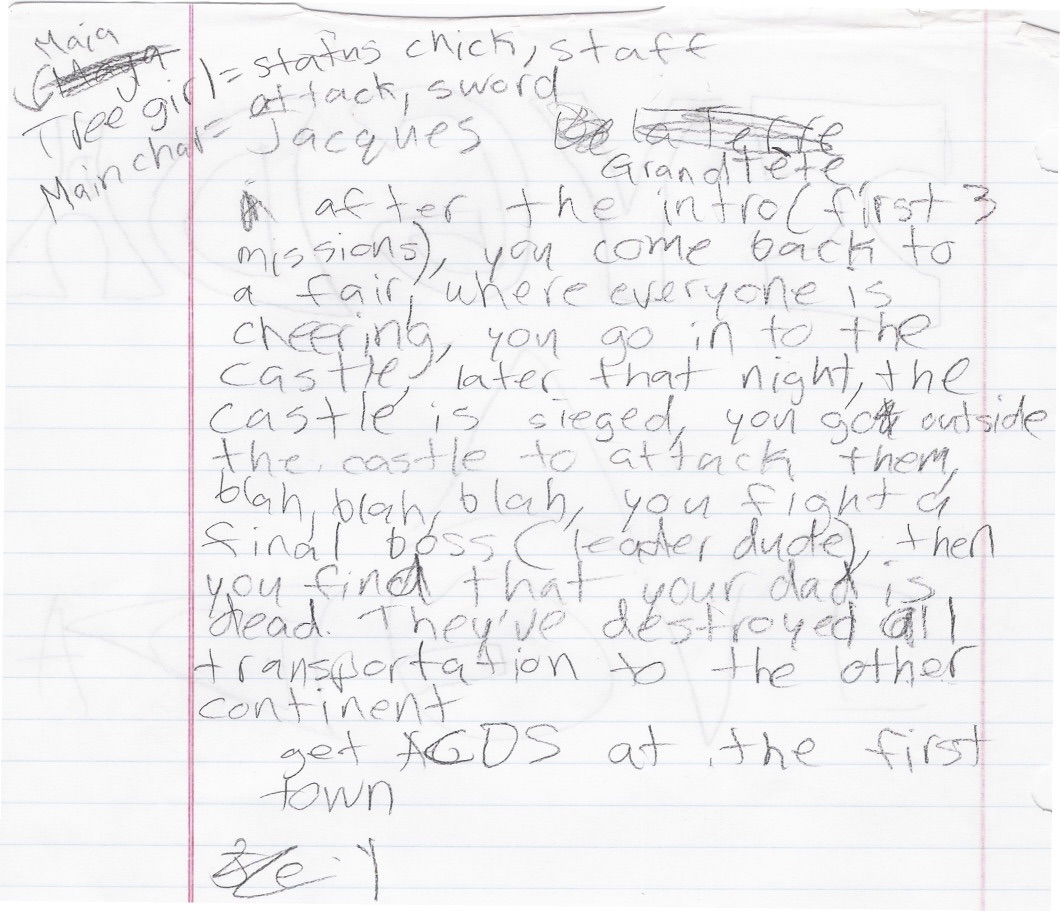 Maia
Tree girl = status chick, staff
attack, sword
Main char = Jacques
GrandTete
after the intro (first 3
missions), you come back to
a fair, where everyone is
cheering, you go in to the
castle, later that night, the
castle is sieged, you go outside
the castle to attack them,
blah, blah, blah, you fight a
final boss (leader dude), then
you find that your dad is
dead. They've destroyed all
transportation to the other
continent
get AGDS at the first
town